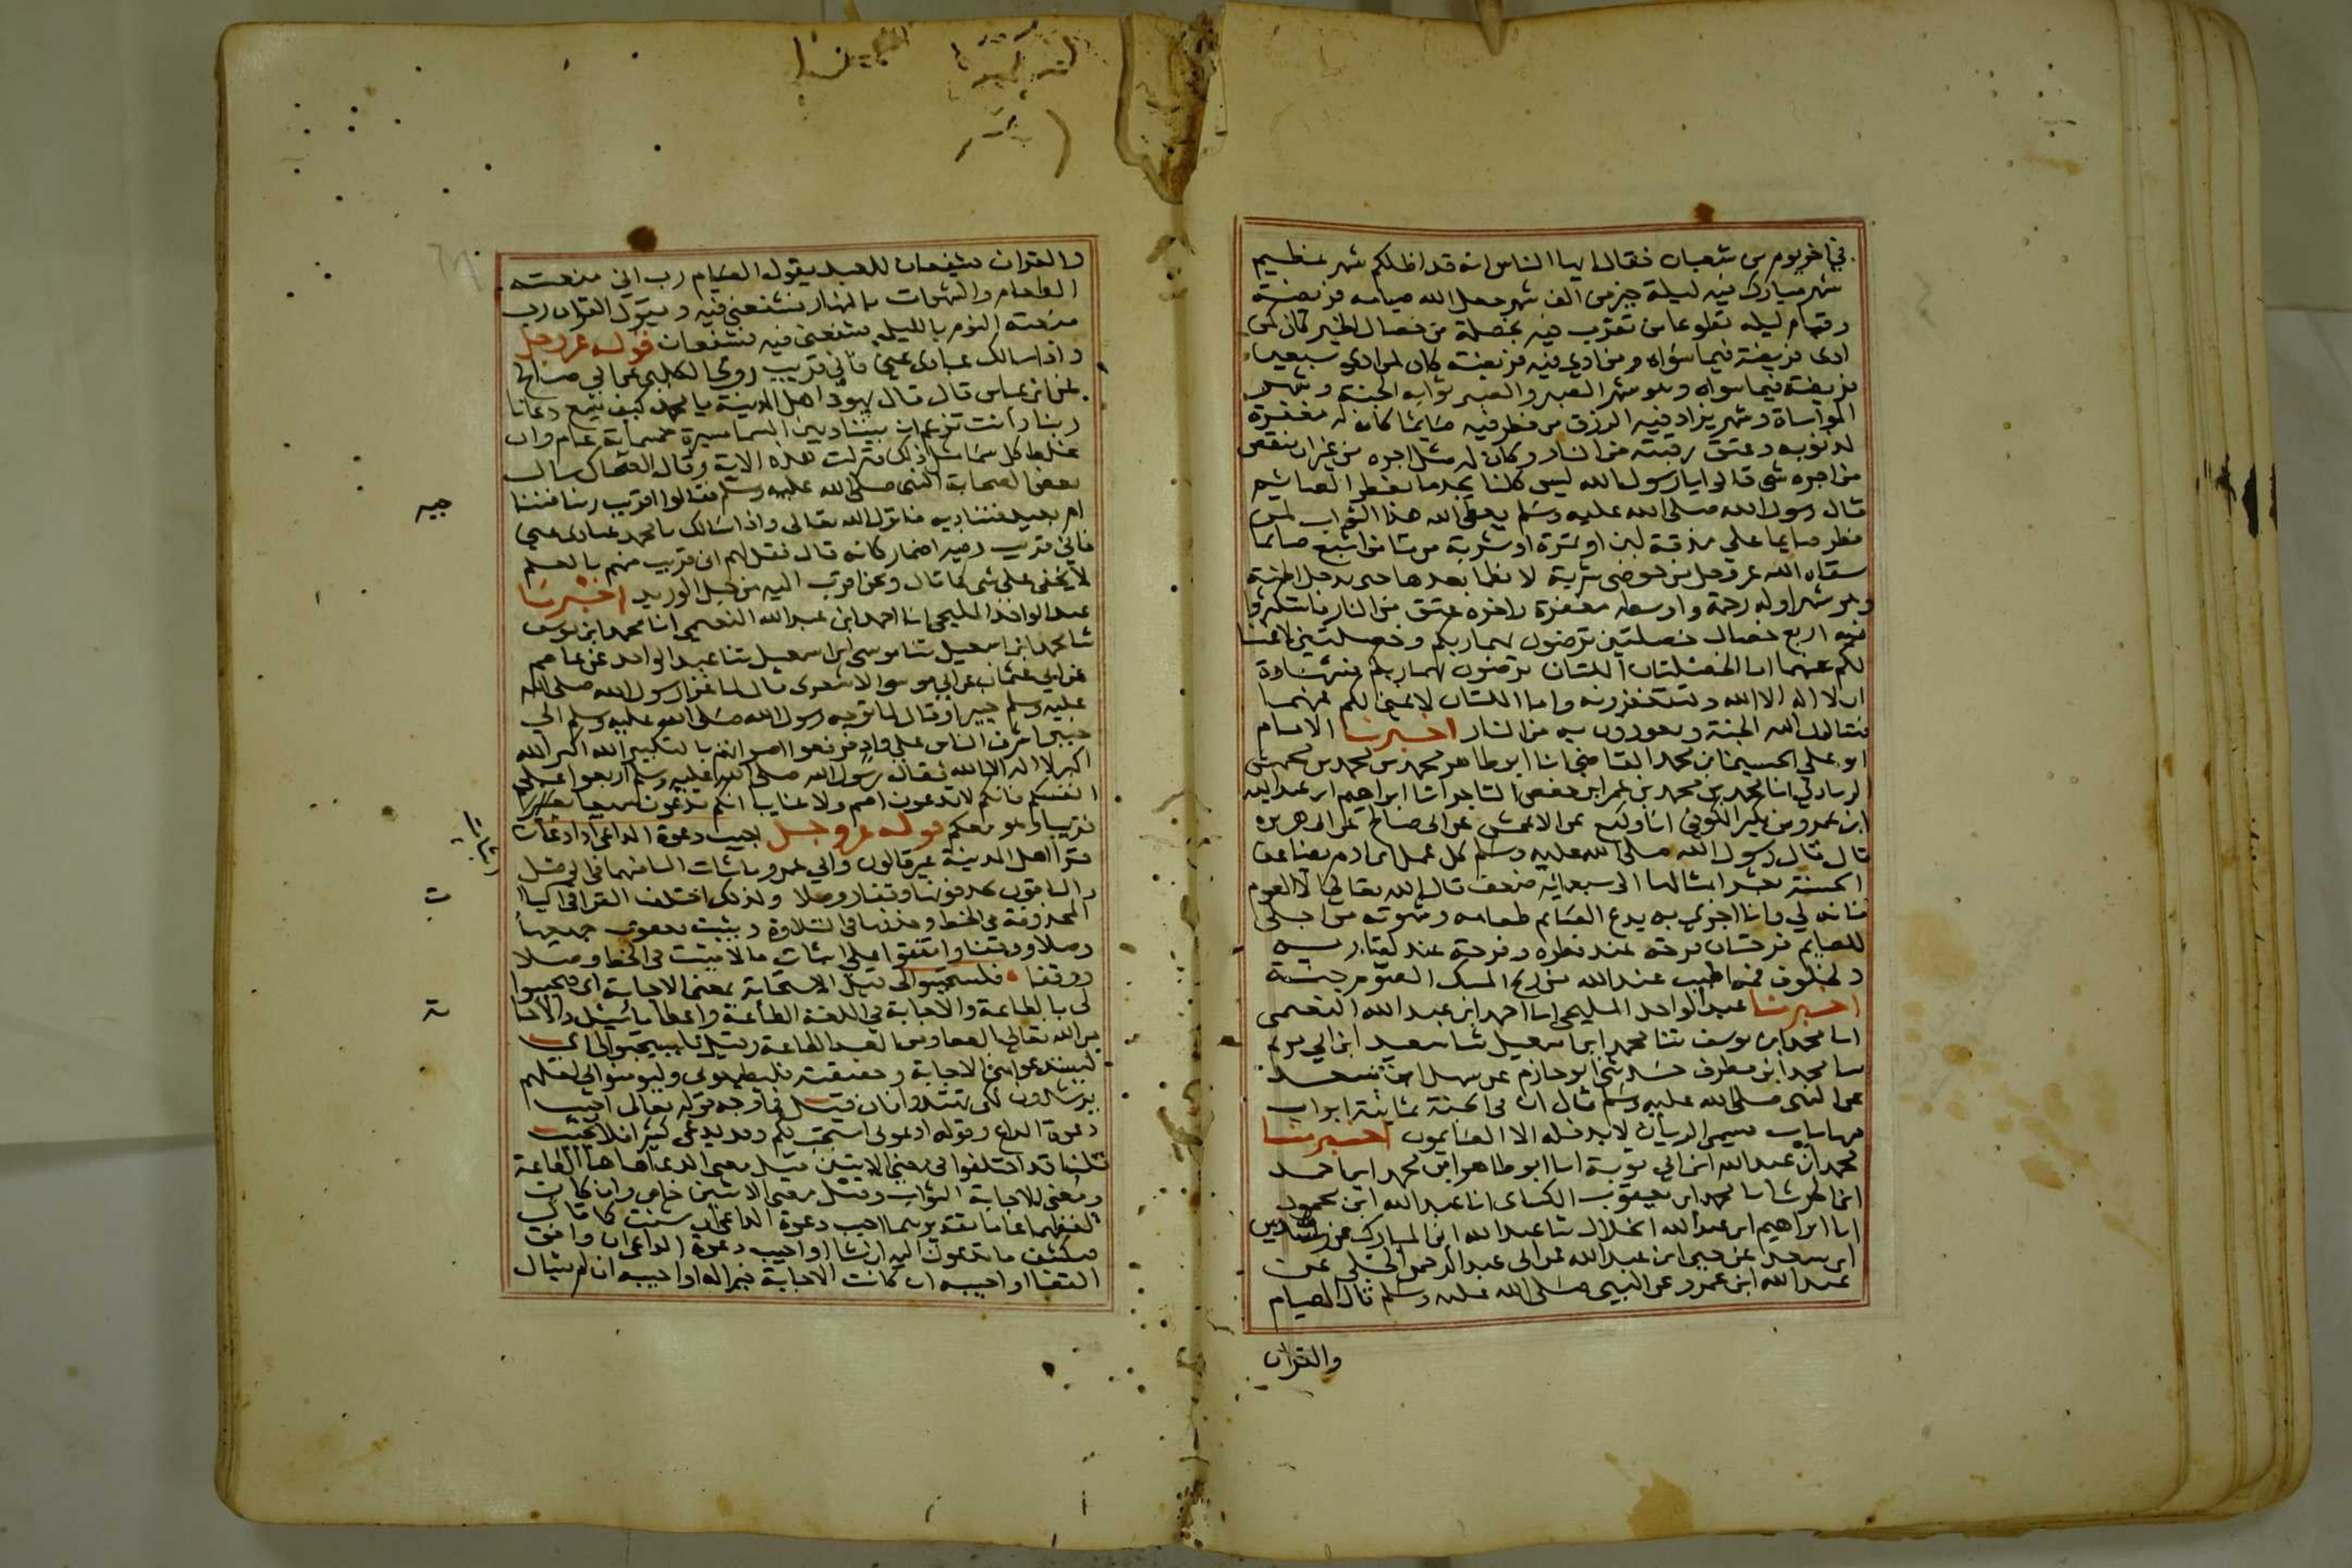 في اخر يوم من شعبان فقال ايها الناس انه قد اظلكم شهر عظيم
شهر مبارك فيه ليلة خير من الف شهر جعل الله صيامه فريضة
وقيام ليله تطوعا من تقرب فيه بخصلة من خصال الخير كان كمن
ادى فريضة فيما سواه ومن ادى فيه فريضة كان كمن ادى سبعين
فريضة فيما سواه وهو شهر الصبر والصبر ثوابه الجنة وشهر
المواساة وشهر يزاد فيه الرزق من فطر فيه صايما كان له مغفرة
لذنوبه وعتق رقبته من النار وكان له مثل اجره من غير ان ينقص
من اجره شي قالوا يا رسول الله ليس كلنا يجد ما يفطر الصايم
قال رسول الله صلى الله عليه وسلم يعطي الله هذا الثواب لمن
فطر صايما على مذقة لبن او تمرة او شربة من ما من اشبع صايما
سقاه الله عز وجل من حوضي شربة لا يظما بعدها حتى يدخل الجنة
وهو شهر اوله رحمة واوسطه مغفرة واخره عتق من النار فاستكثروا
فيه اربع خصال خصلتين ترضون بهما ربكم وخصلتين لا غنا
لكم عنهما اما الخصلتان اللتان ترضون بهما ربكم فشهادة
ان لا اله الا الله وتستغفرونه واما اللتان لا غنى لكم عنهما
فتسالون الله الجنة وتعوذون به من النار اخبرنا الامام
ابو علي الحسين ابن محمد القاضي انا ابو طاهر محمد بن محمد بن محمش
الزيادي انا محمد بن محمد بن عمر ابن حفص التاجر انا ابراهيم ابن عبد الله
ابن عمر بن بكير الكوفي انا وكيع عن الاعمش عن ابى صالح عن ابى هريرة
قال قال رسول الله صلى الله عليه وسلم كل عمل ابن ادم يضاعف
الحسنة بعشر امثالها الى سبعمائة ضعف قال الله تعالى الا الصوم
فانه لي وانا اجزي به يدع الصايم طعامه وشهوته من اجلي
للصايم فرحتان فرحة عند فطره وفرحة عند لقا ربه
ولخلوف فمه اطيب عند الله من ريح المسك الصوم جنة
اخبرنا عبد الواحد المليحي انا احمد ابن عبد الله النعيمي
انا محمد ابن يوسف ثنا محمد ابن اسمعيل ثنا سعيد ابن ابي مريم
ثنا محمد ابن مطرف حدثني ابو حازم عن سهل ابن سعد
عن النبي صلى الله عليه وسلم قال ان في الجنة ثمانية ابواب
فيها باب يسمى الريان لا يدخله الا الصايمون اخبرنا
محمد ابن عبد الله ابن ابي توبة انا ابو طاهر ابن محمد ابن احمد
ابن الحرث انا محمد ابن يعقوب الكساى انا عبد الله ابن محمود
انا ابراهيم ابن عبد الله الخلال ثنا عبد الله ابن المبارك عن رشدين
ابن سعد عن حيى ابن عبد الله عن ابى عبد الرحمن الحبلي عن
عبد الله ابن عمرو عن النبي صلى الله عليه وسلم قال الصيام
والقران
والقران يشفعان للعبد يقول الصيام رب اني منعته
الطعام والشهوات بالنهار فشفعني فيه ويقول القران رب
منعته النوم بالليل فشفعني فيه فيشفعان قوله عز وجل
واذا سالك عبادي عني فاني قريب روى الكلبي عن ابي صالح
عن ابن عباس قال قال يهود اهل المدينة يا محمد كيف يسمع دعانا
ربنا وانت تزعم ان بيننا وبين السما مسيرة خمسماية عام وان
غلظ كل سما مثل ذلك فنزلت هذه الاية وقال الضحاك سال
بعض الصحابة النبي صلى الله عليه وسلم فقالوا اقريب ربنا فننا
جيه
ام بعيد فنناديه فانزل الله تعالى واذا سالك يا محمد عبادي عني
فاني قريب وفيه اضمار كانه قال فقل لهم اني قريب منهم بالعلم
لا يخفى علي شي كما قال ونحن اقرب اليه من حبل الوريد اخبرنا
عبد الواحد المليحي انا احمد ابن عبد الله النعيمي انا محمد ابن يوسف
ثنا محمد ابن اسمعيل ثنا موسى ابن اسمعيل ثنا عبد الواحد عن عاصم
عن ابي عثمان عن ابي موسى الاشعري قال لما غزا رسول الله صلى الله
عليه وسلم خيبر او قال لما توجه رسول الله صلى الله عليه وسلم الى
خيبر اشرف الناس على واد فرفعوا اصواتهم بالتكبير الله اكبر الله
اكبر لا اله الا الله فقال رسول الله صلى الله عليه وسلم اربعوا على
انفسكم فانكم لا تدعون اصم ولا غايبا انكم تدعون سميعا
قريبا وهو معكم قوله عز وجل اجيب دعوة الداعي اذا دعان
قرا اهل المدينة غير قالون وابي عمرو باثبات اليا فيهما في الوصل
والباقون بحذفونها وقفا ووصلا وكذلك اختلف القرا في اليا
ت
المحذوفة من الخط وحذفها في التلاوة ويثبت يعقوب جميعها
وصلا ووقفا واتفقوا على اثبات ما لا يثبت في الخط وصلا
ووقفا فليستجيبوا لى قيل الاستجابة بمعنى الاجابة اى فليجيبوا
لى بالطاعة والاجابة في اللغة الطاعة واعطا ما سئل والاجا
بة
من الله تعالى العطا ومن العبد الطاعة وقيل فليستجيبوا لي اى
ليستدعوا مني الاجابة وحقيقته فليطيعوني وليومنوا بي لعلهم
يرشدون لكى يهتدوا فان قيل فما وجه قوله تعالى اجيب
دعوة الداع وقوله ادعوني استجب لكم وقد يدعى كثيرا فلا يجيب
قلنا قد اختلفوا في معنى الايتين قيل معنى الدعا ها هنا الطاعة
ومعنى الاجابة الثواب وقيل معنى الايتين خاص وان كان
لفظهما عاما تقديرهما اجيب دعوة الداعي ان شئت كما قال
فيكشف ما تدعون اليه ان شا او اجيب دعوة الداعي ان وافق
القضا او اجيبه ان كانت الاجابة خيرا له او اجيبه ان لم يسال